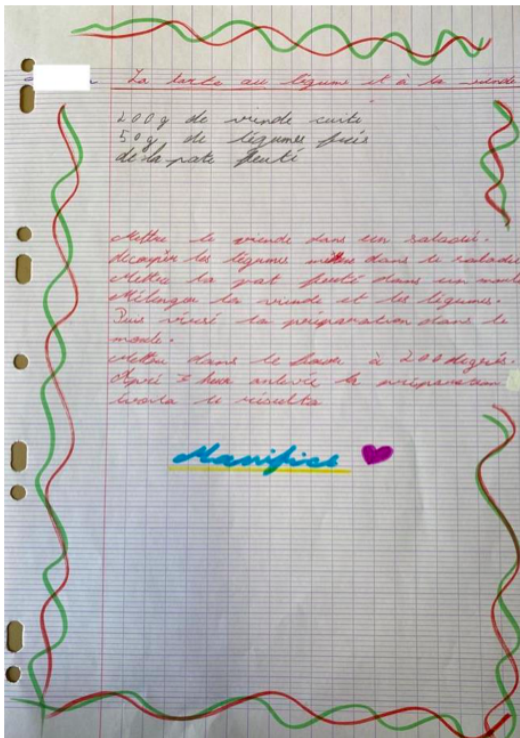 La tarte au légume et à la viende
200g de viende cuite
50g de légumes frès
de la pate feuté
Mettre la viende dans un saladié.
découper les légumes metre dans le saladié
Mettre la pat feuté dans un moule
Mélanger la viende et les légumes.
Puis vèrsé la préparation dans le
moule.
Mettre dans le four à 200 degrés.
Aprè 1 heur enlevé la préparation
voila le résulta
Manifice